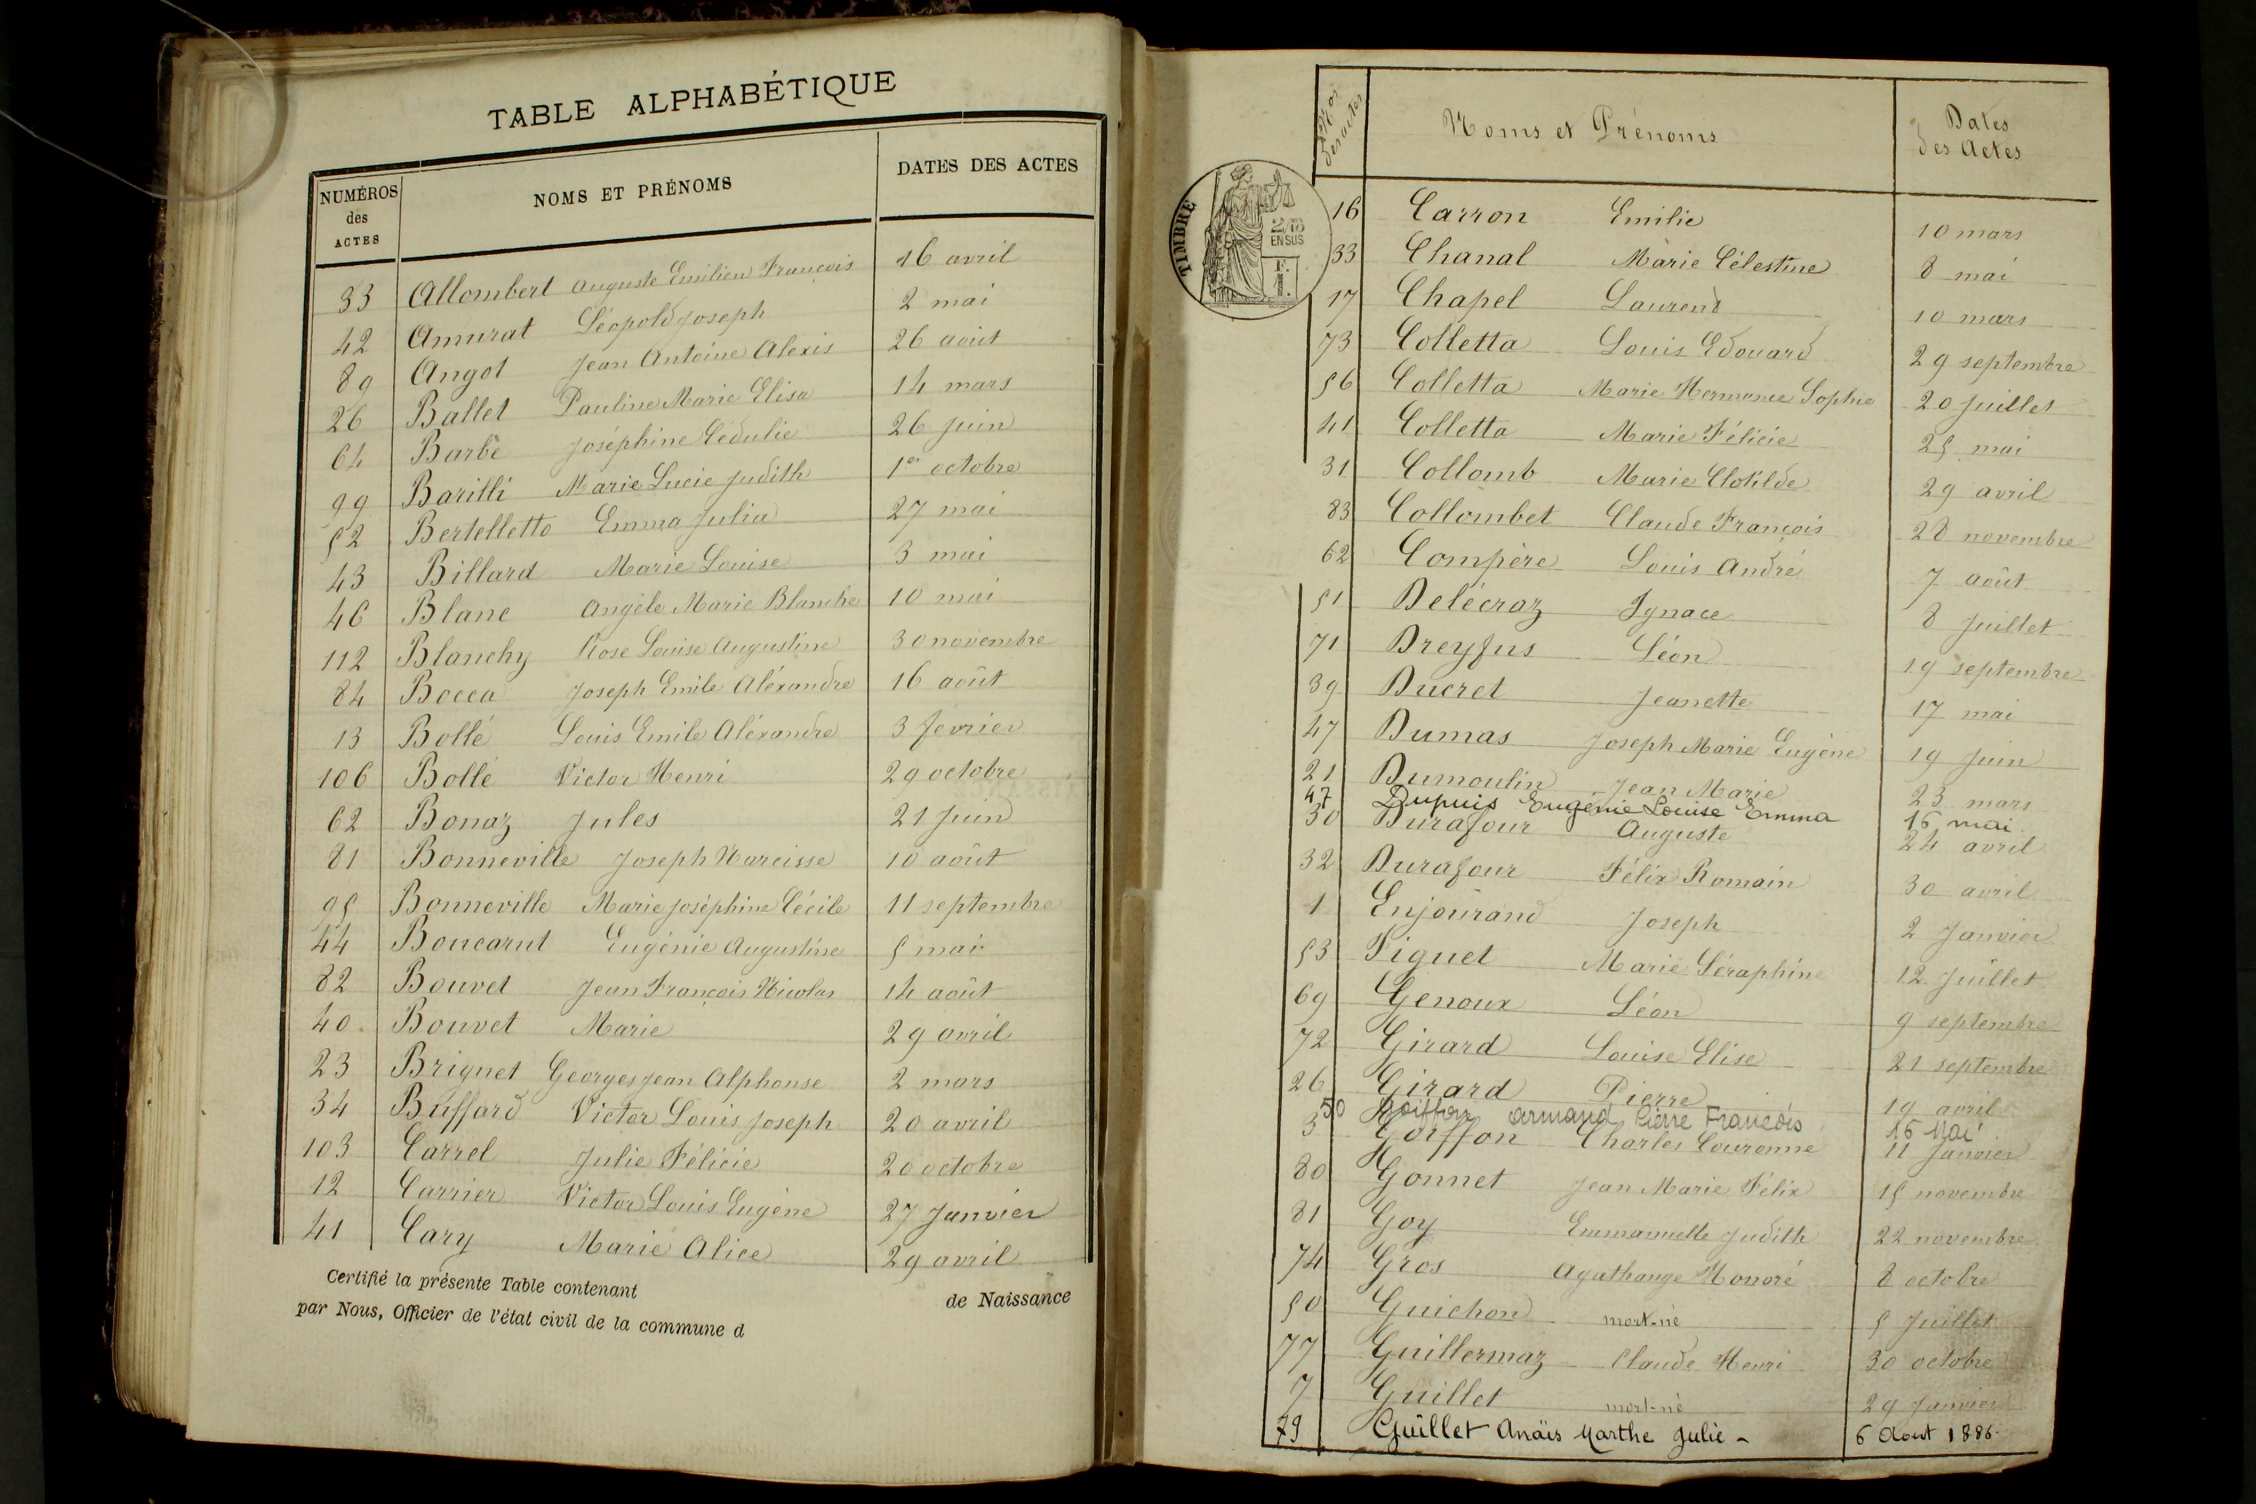 TABLE ALPHABÉTIQUE
NUMÉROS des ACTES NOMS ET PRÉNOMS DATES DES ACTES
33 Allombert Auguste Emilien François 16 avril
42 Amurat Léopold Joseph 2 mai
89 Angot Jean Antoine Alexis 26 août
26 Ballet Pauline Marie Elisa 14 mars
64 Barbe Joséphine Cédulie 26 Juin
99 Barilli Marie Lucie Judith 1er octobre
52 Bertelletto Emma Julia 27 mai
43 Billard Marie Louise 3 mai
46 Blanc Angèle Marie Blanche 10 mai
112 Blanchy Rose Louise Augustine 30 novembre
84 Bocca Joseph Emile Aléxandre 16 août
13 Bollé Louis Emile Aléxandre 3 février
106 Bollé Victor Henri 29 octobre
62 Bonaz Jules 21 Juin
81 Bonneville Joseph Narcisse 10 août
95 Bonneville Marie Joséphine Cécile 11 septembre
44 Boucarut Eugénie Augustine 5 mai
82 Bouvet Jean François Nicolas 14 août
40 Bouvet Marie 29 avril
23 Briguet Georges Jean Alphonse 2 mars
34 Buffard Victor Louis Joseph 20 avril
103 Carrel Julie Félicie 20 octobre
12 Carrier Victor Louis Eugène 27 Janvier
41 Cary Marie Alice 29 avril
Certifié la présente Table contenant de Naissance
par Nous, Officier de l'état civil de la commune d
Nos des actes Noms et Prénoms Dates des Actes
TIMBRE
2/10
EN SUS
F.
1.
16 Carron Emilie 10 mars
33 Chanal Marie Célestine 8 mai
17 Chapel Laurend 10 mars
73 Colletta Louis Edouard 29 septembre
56 Colletta Marie Hermance Sophie 20 Juillet
41 Colletta Marie Félicie 25 mai
31 Collomb Marie Clotilde 29 avril
83 Collombet Claude François 28 novembre
62 Compère Louis André 7 août
51 Delécraz Ignace 8 Juillet
71 Dreyfus Léon 19 septembre
39 Ducret Jeanette 17 mai
47 Dumas Joseph Marie Eugène 19 Juin
21 Dumoulin Jean Marie 23 mars
47 Dupuis Eugénie Louise Emma 16 mai
30 Durafour Auguste 24 avril
32 Durafour Félix Romain 30 avril
1 Enjourand Joseph 2 Janvier
53 Figuet Marie Séraphine 12 Juillet
69 Genoux Léon 9 septembre
72 Girard Louise Elise 21 septembre
26 Girard Pierre 19 avril
50 Goiffon Armand Pierre François 16 Mai
3 Goiffon Charles Couronne 11 Janvier
80 Gonnet Jean Marie Félix 15 novembre
81 Goy Emmanuelle Judith 22 novembre
74 Gros Agathange Honoré 8 octobre
50 Guichon mort-né 5 Juillet
77 Guillermaz Claude Henri 30 octobre
7 Guillet mort-né 29 Janvier
79 Guillet Anaïs Marthe Julie - 6 Août 1886